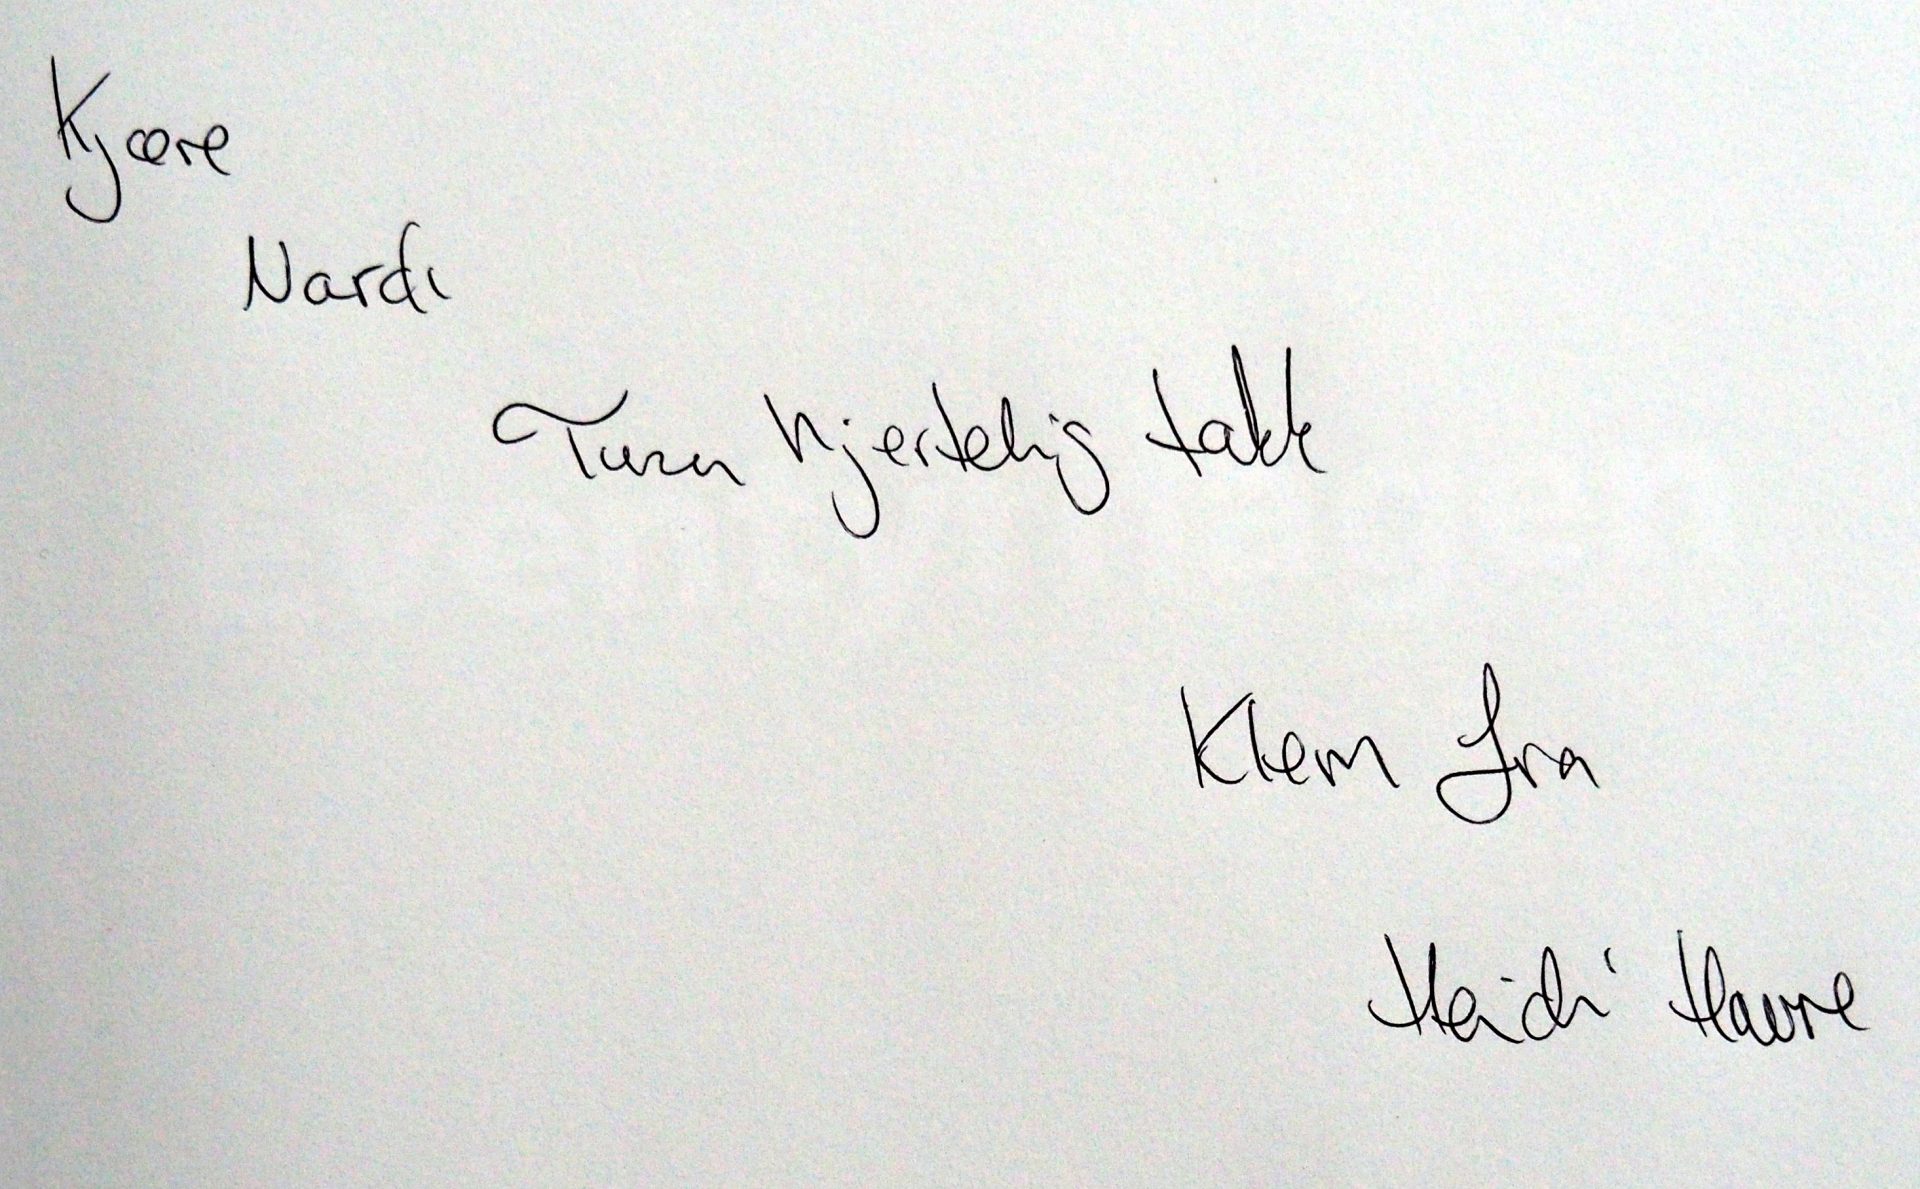 Kjære
Nardi
Tusen hjertelig takk
Klem fra
Heidi Haure